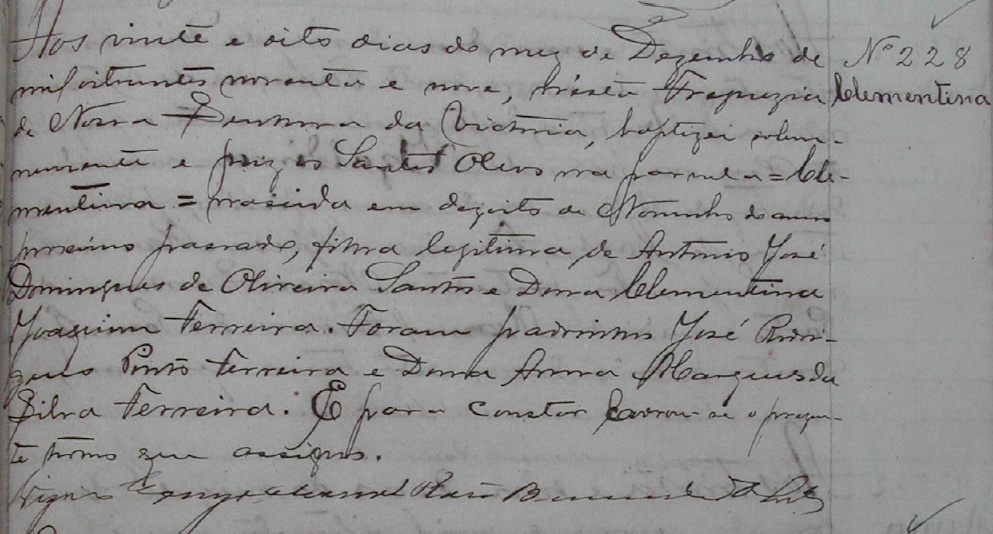 Aos vinte e oito dias do mez de Dezembro de
Nº 228
mil oitocentos noventa e nove, n'ésta Freguezia
Clementina
de Nossa Senhora da Victoria, baptizei solem-
nemente e puz os Santos Oleos na parvula = Cle-
mentina = nascida em dezoito de Novembro do anno
proximo passado, filha legitima de Antonio José
Domingues de Oliveira Santos e Dona Clementina
Joaquina Ferreira. Foram padrinhos José Rodri-
gues Pinto Ferreira e Dona Anna Marques da
Silva Ferreira. E para constar lavrou-se o presen-
te termo que assigno.
Vigro